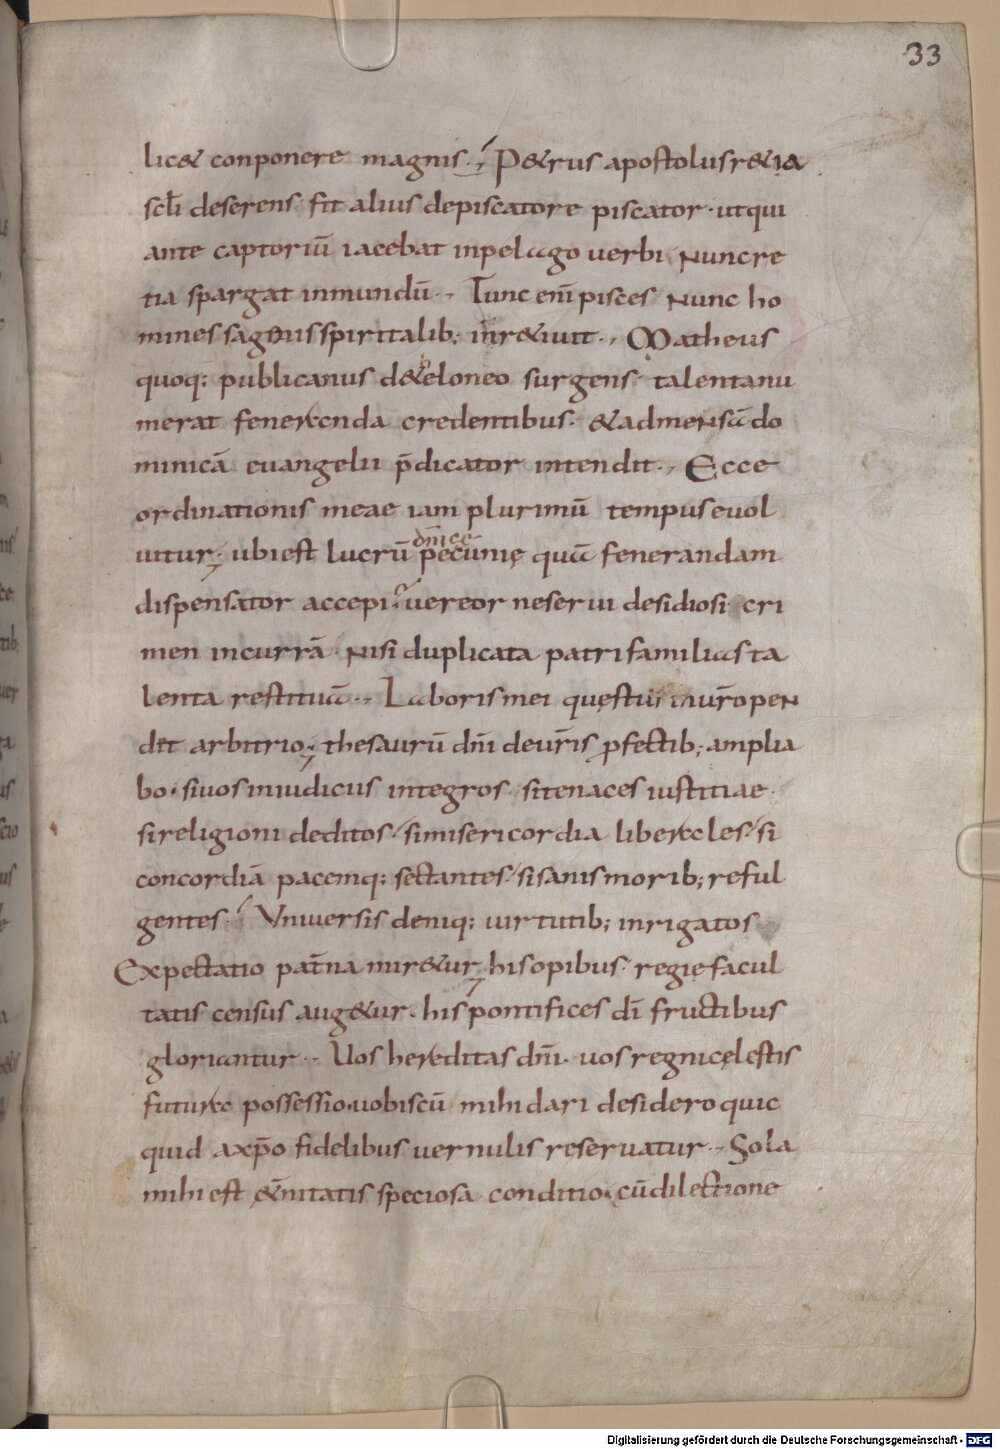 33
lic& conponere magnis·, P&rus apostolus r&ia
scłi deserens· fit alius depiscatore piscator· utqui
ante captoriū iacebat inpelago uerbi· Nuncre
tia spargat inmundū·, Tunc eni̅ pisces Nunc ho
mines sagenis spiritalib; inr&iuit·, Matheus
quoq; publicanus d&heloneo surgens· talentanu
merat feneranda credentibus· &admensā do
minicā euangelii p̄dicator intendit·, Ecce
ordinationis meae iam plurimū tempus euol
uitur; ubi est lucrū dn̄icę pecunię quā fenerandam
dispensator accepi·? uereor neserui desidiosi cri
men incurrā· Nisi duplicata patrifamilias ta
lenta restituā·, Laboris mei questus inur̄o pen
det arbitrio; thesaurū dn̄i deur̄is p̱fectib; amplia
bo· siuos iniudiciis integros· si tenaces iustitiae·
si religioni deditos· si misericordia liberales· si
concordiā pacemq; sectantes· si sanis morib; reful
gentes·, Uniuersis deniq; uirtutib; inrigatos
Expectatio pat̄na mir&ur; his opibus· regię facul
tatis census aug&ur· his pontifices dī fructibus
gloriantur·, Uos hereditas dn̄i· uos regni cęlestis
futura possessio· uobiscū mihi dari desidero quic
quid axp̄o fidelibus uernulis reseruatur·, Sola
mihi est &n̄itatis speciosa conditio· cū dilectione
Digitalisierung gefördert durch die Deutsche Forschungsgemeinschaft - DFG